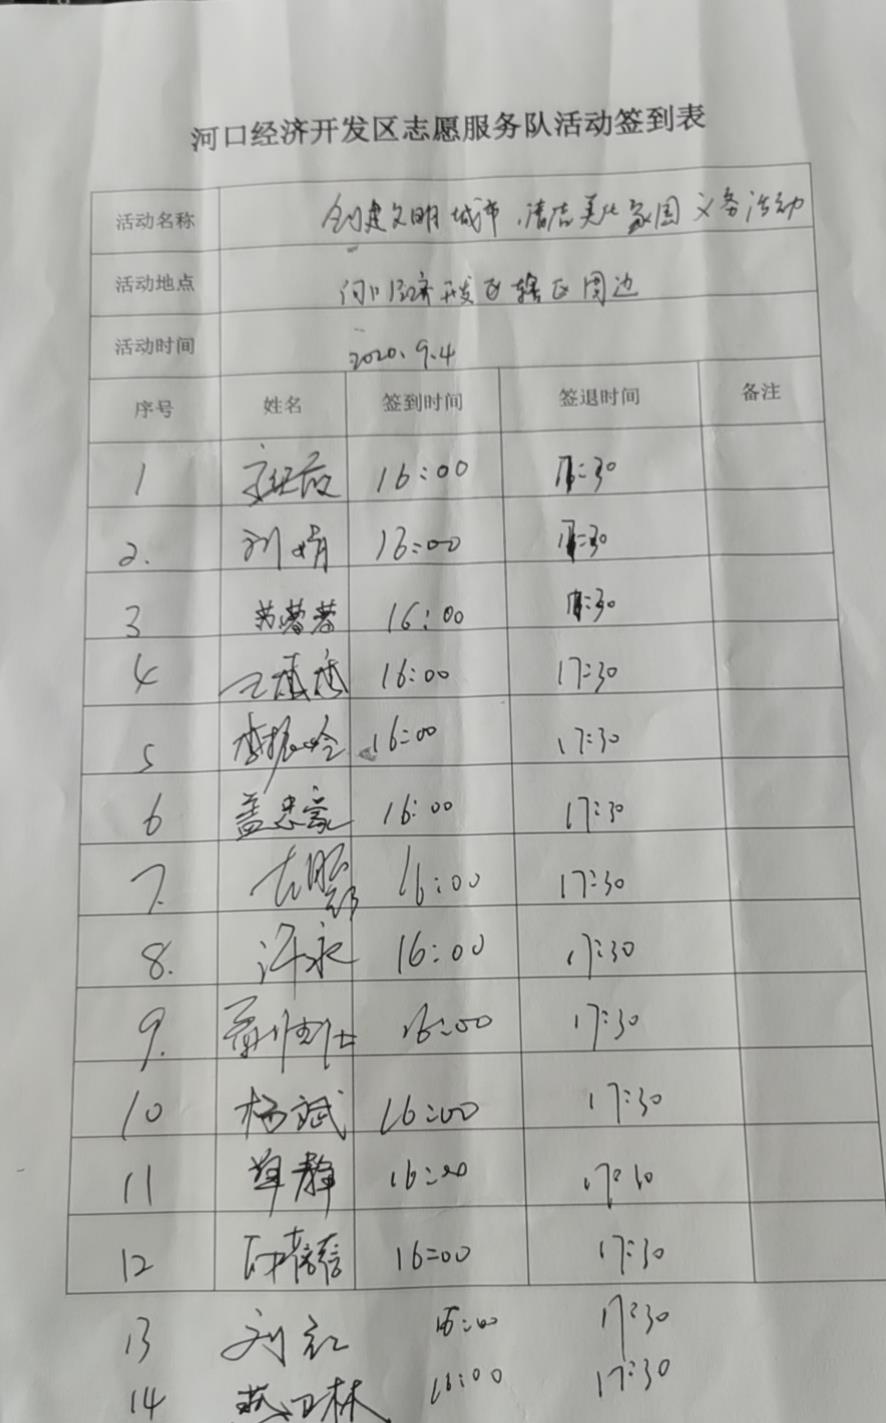 河口经济开发区志愿服务队活动签到表
活动名称 创建文明城市、清洁美化家园义务活动
活动地点 河口经济开发区辖区周边
活动时间 2020.9.4
序号 姓名 签到时间 签退时间 备注
1 16:00 17:30
2. 刘娟 16:00 17:30
3 苏蓉蓉 16:00 17:30
4 16:00 17:30
5 李振玲 16:00 17:30
6 盖忠豪 16:00 17:30
7. 16:00 17:30
8. 许永 16:00 17:30
9. 16:00 17:30
10 杨斌 16:00 17:30
11 单静 16:00 17:30
12 16:00 17:30
13 刘红 16:00 17:30
14 燕卫林 16:00 17:30